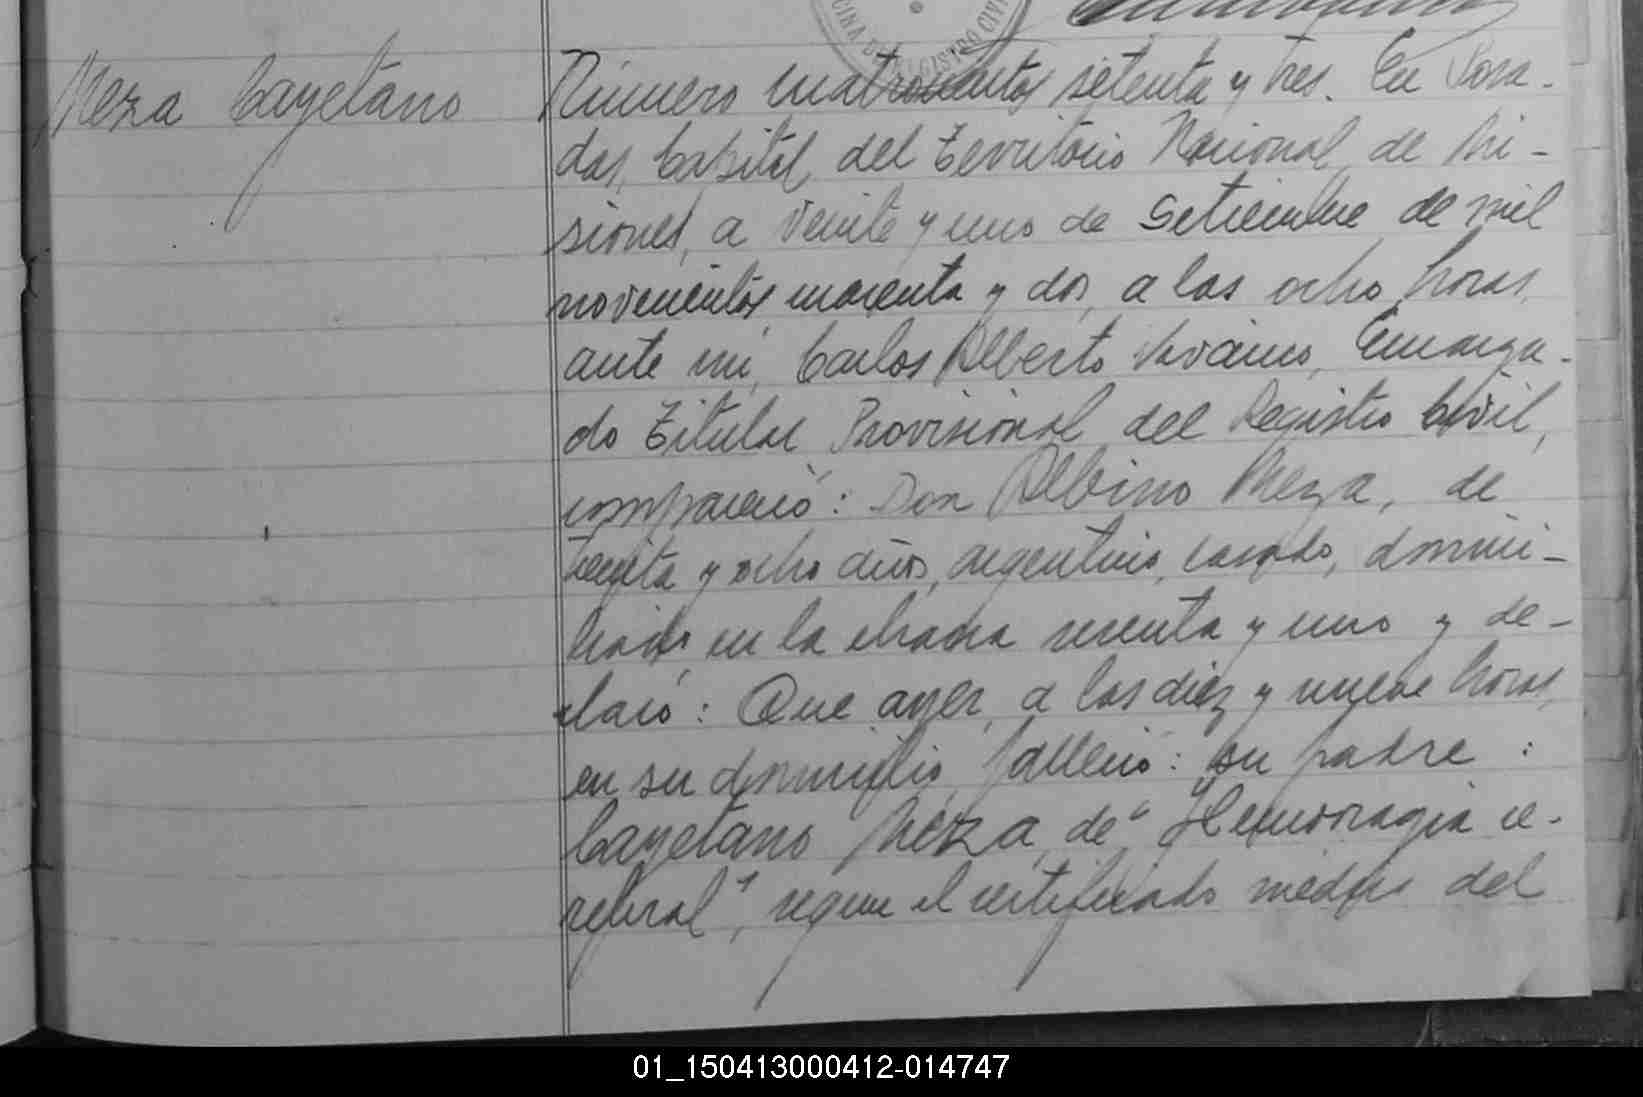 OFICINA DEL REGISTRO CIVIL
Meza Cayetano
Número cuatrocientos setenta y tres. En Posa-
das, Capital del Territorio Nacional de Mi-
siones, a veinte y uno de Setiembre de mil
novecientos cuarenta y dos, a las ocho horas,
ante mí, Carlos Alberto Encarga-
do Titular Provisional del Registro Civil,
compareció: Don Albino Meza, de
treinta y ocho años, argentino, casado, domici-
liado en la chacra sesenta y uno y de-
claró: Que ayer, a las diez y nueve horas,
en su domicilio falleció: su padre:
Cayetano Meza, de "Hemorragia ce-
rebral", según el certificado médico del
01_150413000412-014747